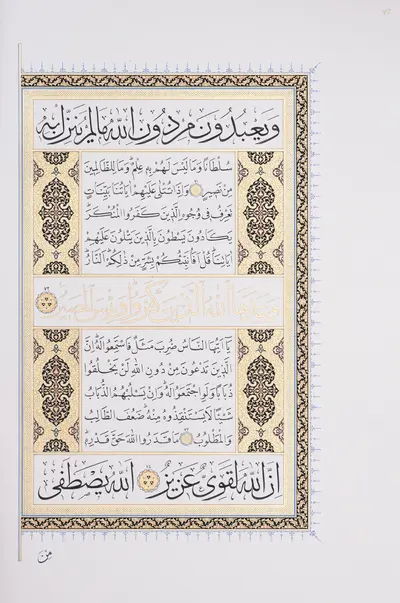 وَيَعْبُدُونَ مِنْ دُونِ اللَّهِ مَا لَمْ يُنَزِّلْ بِهِ
سُلْطَانًا وَمَا لَيْسَ لَهُمْ بِهِ عِلْمٌ وَمَا لِلظَّالِمِينَ
مِنْ نَصِيرٍ وَإِذَا تُتْلَى عَلَيْهِمْ آيَاتُنَا بَيِّنَاتٍ
تَعْرِفُ فِي وُجُوهِ الَّذِينَ كَفَرُوا الْمُنْكَرَ
يَكَادُونَ يَسْطُونَ بِالَّذِينَ يَتْلُونَ عَلَيْهِمْ
آيَاتِنَا قُلْ أَفَأُنَبِّئُكُمْ بِشَرٍّ مِنْ ذَلِكُمُ النَّارُ
وَعَدَهَا اللَّهُ الَّذِينَ كَفَرُوا وَبِئْسَ الْمَصِيرُ
يَا أَيُّهَا النَّاسُ ضُرِبَ مَثَلٌ فَاسْتَمِعُوا لَهُ إِنَّ
الَّذِينَ تَدْعُونَ مِنْ دُونِ اللَّهِ لَنْ يَخْلُقُوا
ذُبَابًا وَلَوِ اجْتَمَعُوا لَهُ وَإِنْ يَسْلُبْهُمُ الذُّبَابُ
شَيْئًا لَا يَسْتَنْقِذُوهُ مِنْهُ ضَعُفَ الطَّالِبُ
وَالْمَطْلُوبُ مَا قَدَرُوا اللَّهَ حَقَّ قَدْرِهِ
إِنَّ اللَّهَ لَقَوِيٌّ عَزِيزٌ اللَّهُ يَصْطَفِي
مِنَ